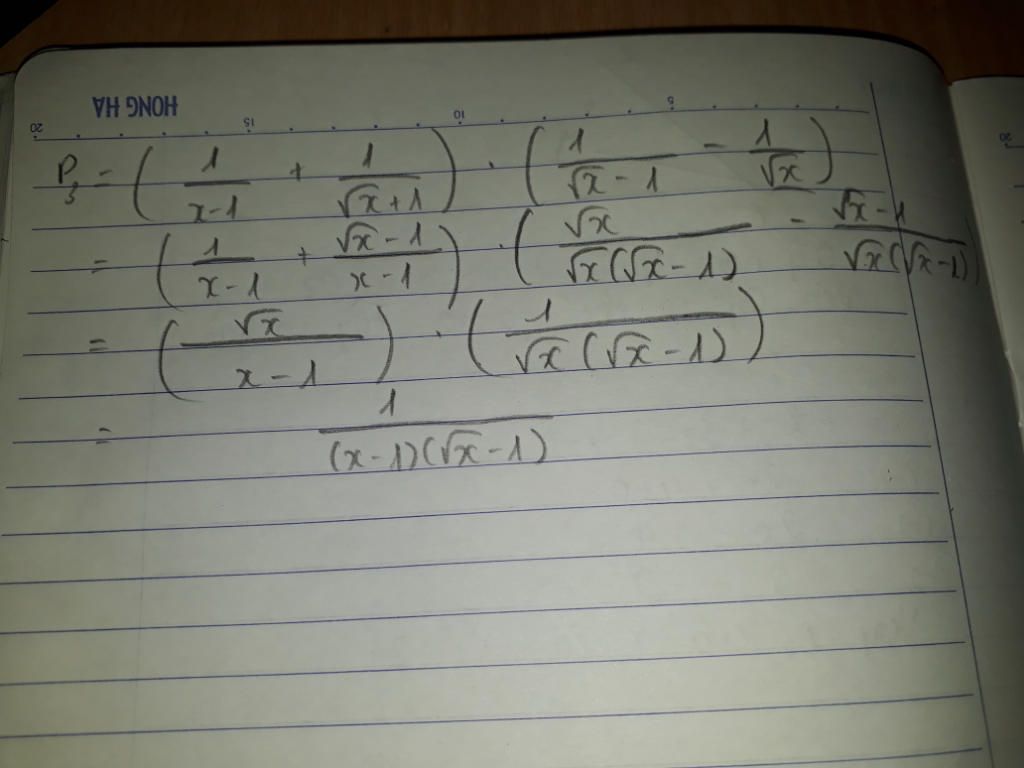 HONG HA
20 15 10 5 20
P₃ = ( 1/(x-1) + 1/(√x+1) ) . ( 1/(√x - 1) - 1/√x )
= ( 1/(x-1) + (√x - 1)/(x-1) ) . ( √x/(√x(√x-1)) - (√x-1)/(√x(√x-1)) )
= ( √x/(x-1) ) . ( 1/(√x(√x-1)) )
= 1/((x-1)(√x-1))